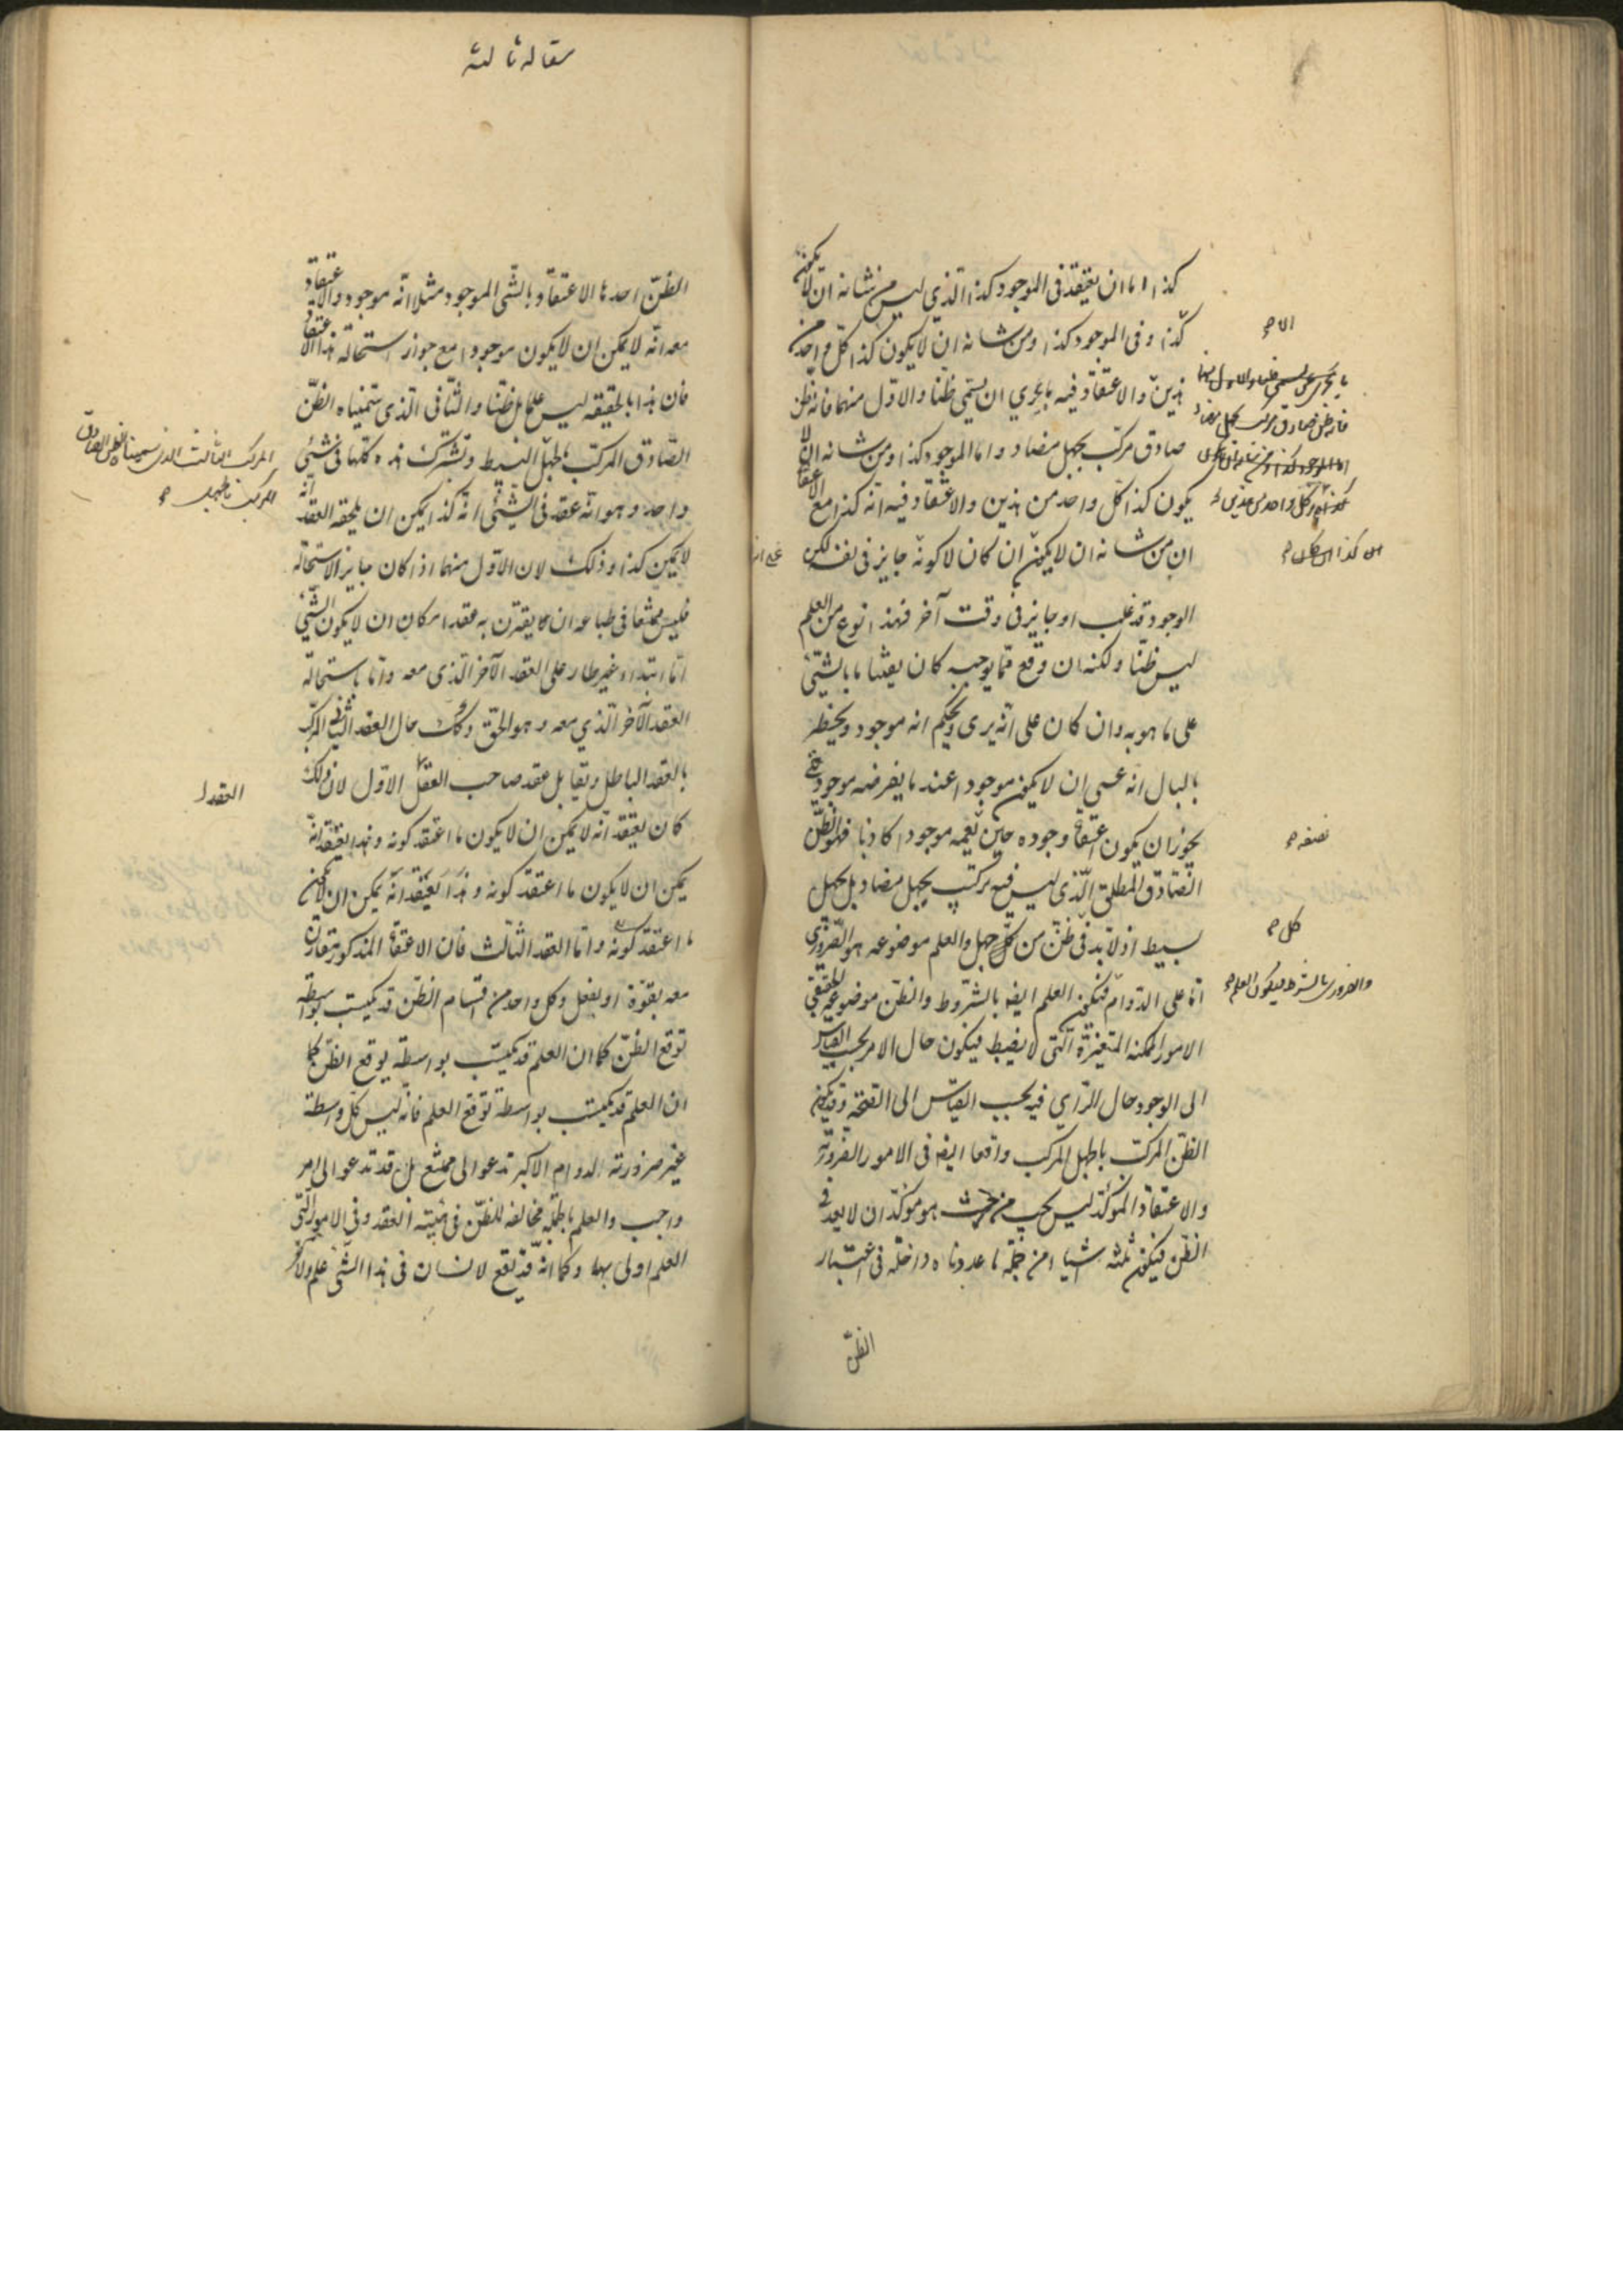 كذا اما ان يعتقد فى الموجود كذا الذي ليس من شانه ان لا يكون
كذا و فى الموجود كذا و من شانه ان لا يكون كذا كل واحد من
هذين والاعتقاد فيه بالحري ان يسمي ظنا والاول منهما فانه ظن
صادق مركب بجهل مضاد واما الموجود كذا ومن شانه ان لا
يكون كذا كل واحد من هذين والاعتقاد فيه انه كذا مع الاعتقاد
ان من شانه ان لا يكون ان كان لا كونه جايز فى نفسه لكن
الوجود قد غلب او جايز فى وقت آخر فهذا نوع من العلم
ليس ظنا ولكنه ان وقع مما يوجبه كان يقينا ما بالشئ
على ما هو به وان كان على انه يرى ويحكم انه موجود ويخطر
بالبال انه عسى ان لا يكون موجودا عند ما يفرضه موجودا حتى
يجوز ان يكون اعتقاد وجوده حين يعمه موجودا كاذبا فهو الظن
الصادق المطلق الذي ليس فيه تركيب بجهل مضاد بل بجهل
بسيط اذ لا بد فى ظن من كل جهل والعلم موضوعه هو الضروري
اما على الدوام فيكون العلم ايضا بالشروط والظن موضوعه الحقيقي
الامور الممكنه المتغيرة التى لا يضبط فيكون حال الامر بحسب القياس
الى الوجود حال الراي فيه بحسب القياس الى الصحة وقد يكون
الظن المركب بالجهل المركب واقعا ايضا فى الامور الضروريه
والاعتقاد الموكد ليس يجب من حيث هو موكد ان لا يعد فى
الظن فيكون ثلثه اشيا من جملة ما عددناه داخله فى اعتبار
الظن
الا ح
فانه ظن صادق مركب بجهل مضاد
نصفه ح
كل ح
والضرورى بالشرط فيكون العلم ح
مقاله ثالثه
الظن احدها الاعتقاد بالشى الموجود مثلا انه موجود والاعتقاد
معه انه لا يمكن ان لا يكون موجودا مع جواز استحالة هذا الاعتقاد
فان هذا بالحقيقه ليس علما بل ظنا والثانى الذي سميناه الظن
الصادق المركب بالجهل البسيط وتشترك هذه كلها فى شئ
واحد وهو انه عقد فى الشئ انه كذا يمكن ان يلحقه العقد انه
لا يمكن كذا وذلك لان الاول منهما اذ كان جايز الاستحالة
فليس ممتنعا فى طباعه ان لا يقترن به عقد امكان ان لا يكون الشئ
اما ابتداء غير طار على العقد الآخر الذى معه واما باستحالة
العقد الآخر الذي معه وهو الحق وكذلك حال العقد الثانى المركب
بالعقد الباطل ويقابل عقد صاحب العقل الاول لان ذلك
كان يعتقد انه لا يمكن ان لا يكون ما اعتقد كونه وهذا يعتقد انه
يمكن ان لا يكون ما اعتقد كونه وهذا يعتقد انه يمكن ان لا يكون
ما اعتقد كونه واما العقد الثالث فان الاعتقاد المذكور يقارن
معه بقوة او بفعل وكل واحد من اقسام الظن قد يكتسب بواسطة
توقع الظن كما ان العلم قد يكتسب بواسطة يوقع الظن كما
ان العلم قد يكتسب بواسطة توقع العلم فانه ليس كل واسطة
غير ضرورته الدوام الاكبر تدعو الى ممتنع بل قد تدعو الى امر
واجب والعلم بالجملة مخالفه للظن فى هيئته العقد وفى الامور التى
العلم اولى بها وكما انه قد يقع لانسان فى هذا الشى علم ولآخر
المركب الثالث الذى سميناه الظن الصادق
المركب بالجهل ح
العقد